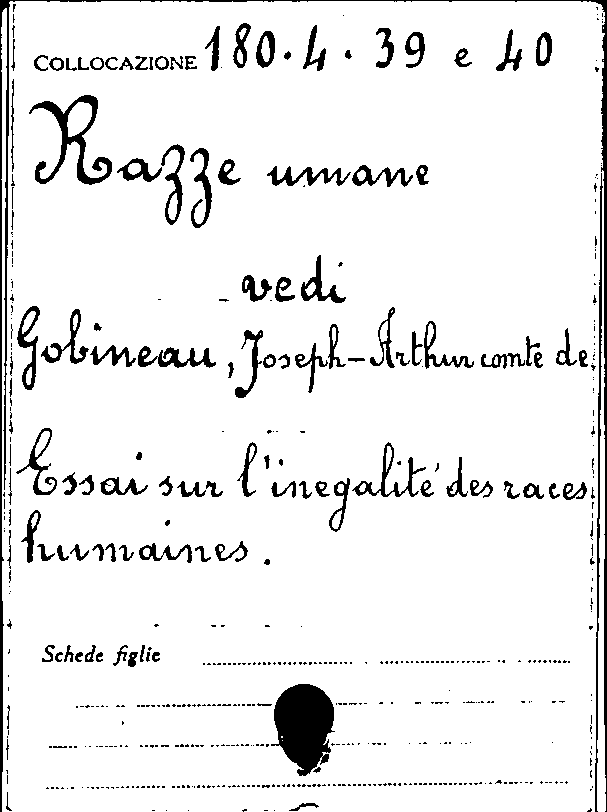 COLLOCAZIONE 180.4.39 e 40
Razze umane
vedi
Gobineau, Joseph-Arthur comte de
Essai sur l'inegalité des races
humaines.
Schede figlie